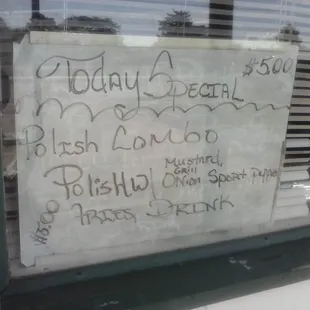 Today Special $5.00
Polish Combo
Polish W/ Mustard,
Grill
Onion Sport Pepper
Fries, Drink
$5.00